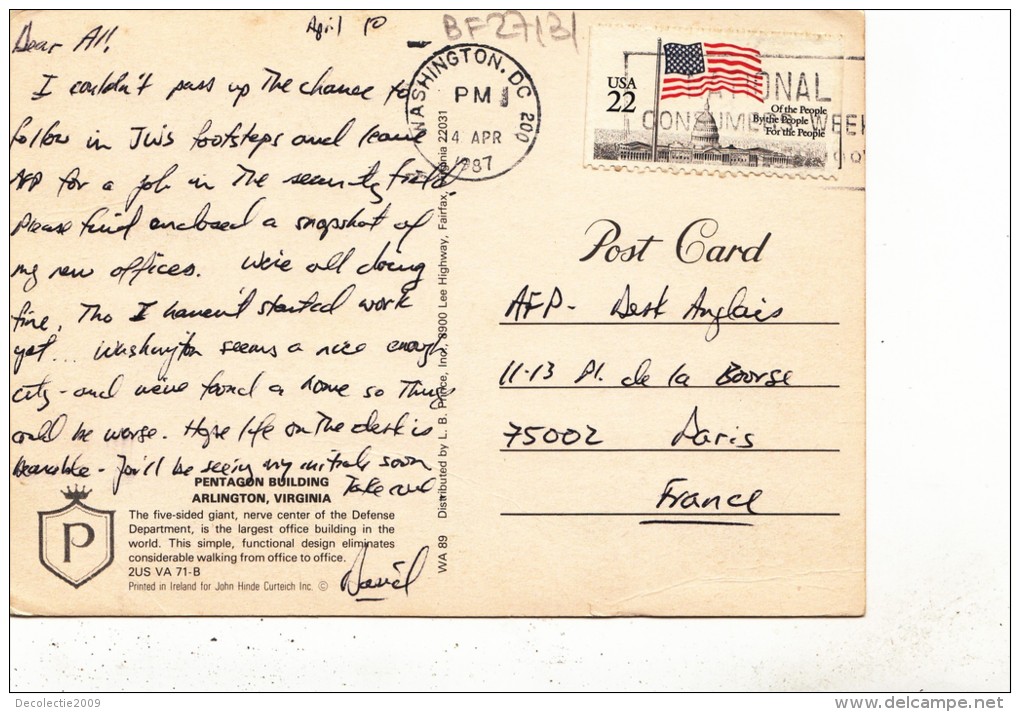 April 10
Dear All,
I couldn't pass up the chance to
follow in JW's footsteps and leave
AFP for a job in the security field.
Please find enclosed a snapshot of
my new offices. We're all doing
fine, Tho I haven't started work
yet... Washington seems a nice enough
city - and we've found a home so things
could be worse. Hope life on the desk is
bearable - You'll be seeing my initials soon
Take care
David
PENTAGON BUILDING
ARLINGTON, VIRGINIA
The five-sided giant, nerve center of the Defense
Department, is the largest office building in the
world. This simple, functional design eliminates
considerable walking from office to office.
2US VA 71-B
Printed in Ireland for John Hinde Curteich Inc. ©
P
WA 89 Distributed by L. B. Prince, Inc., 8900 Lee Highway, Fairfax, Virginia 22031
BF27131
WASHINGTON, DC 200
PM
4 APR
1987
USA
22
Of the People
By the People
For the People
NATIONAL
CONSUMERS WEEK
Post Card
AFP - Desk Anglais
11-13 Pl. de la Bourse
75002 Paris
France
Decolectie2009
http://www.delcampe.net